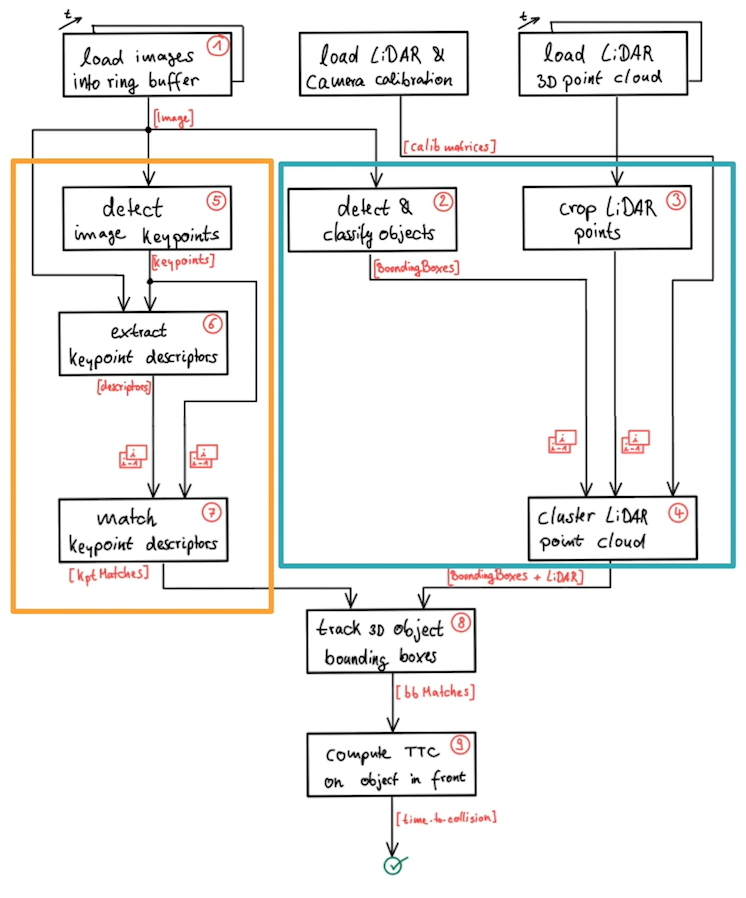 t
t
load images
into ring buffer
1
load LiDAR &
Camera calibration
load LiDAR
3D point cloud
[Image]
[calib matrices]
detect
image keypoints
5
detect &
classify objects
2
crop LiDAR
points
3
[keypoints]
[BoundingBoxes]
extract
keypoint descriptors
6
[descriptors]
i
i-1
i
i-1
i
i-1
i
i-1
match
keypoint descriptors
7
cluster LiDAR
point cloud
4
[KptMatches]
[BoundingBoxes + LiDAR]
track 3D object
bounding boxes
8
[bbMatches]
compute TTC
on object in front
9
[time-to-collision]